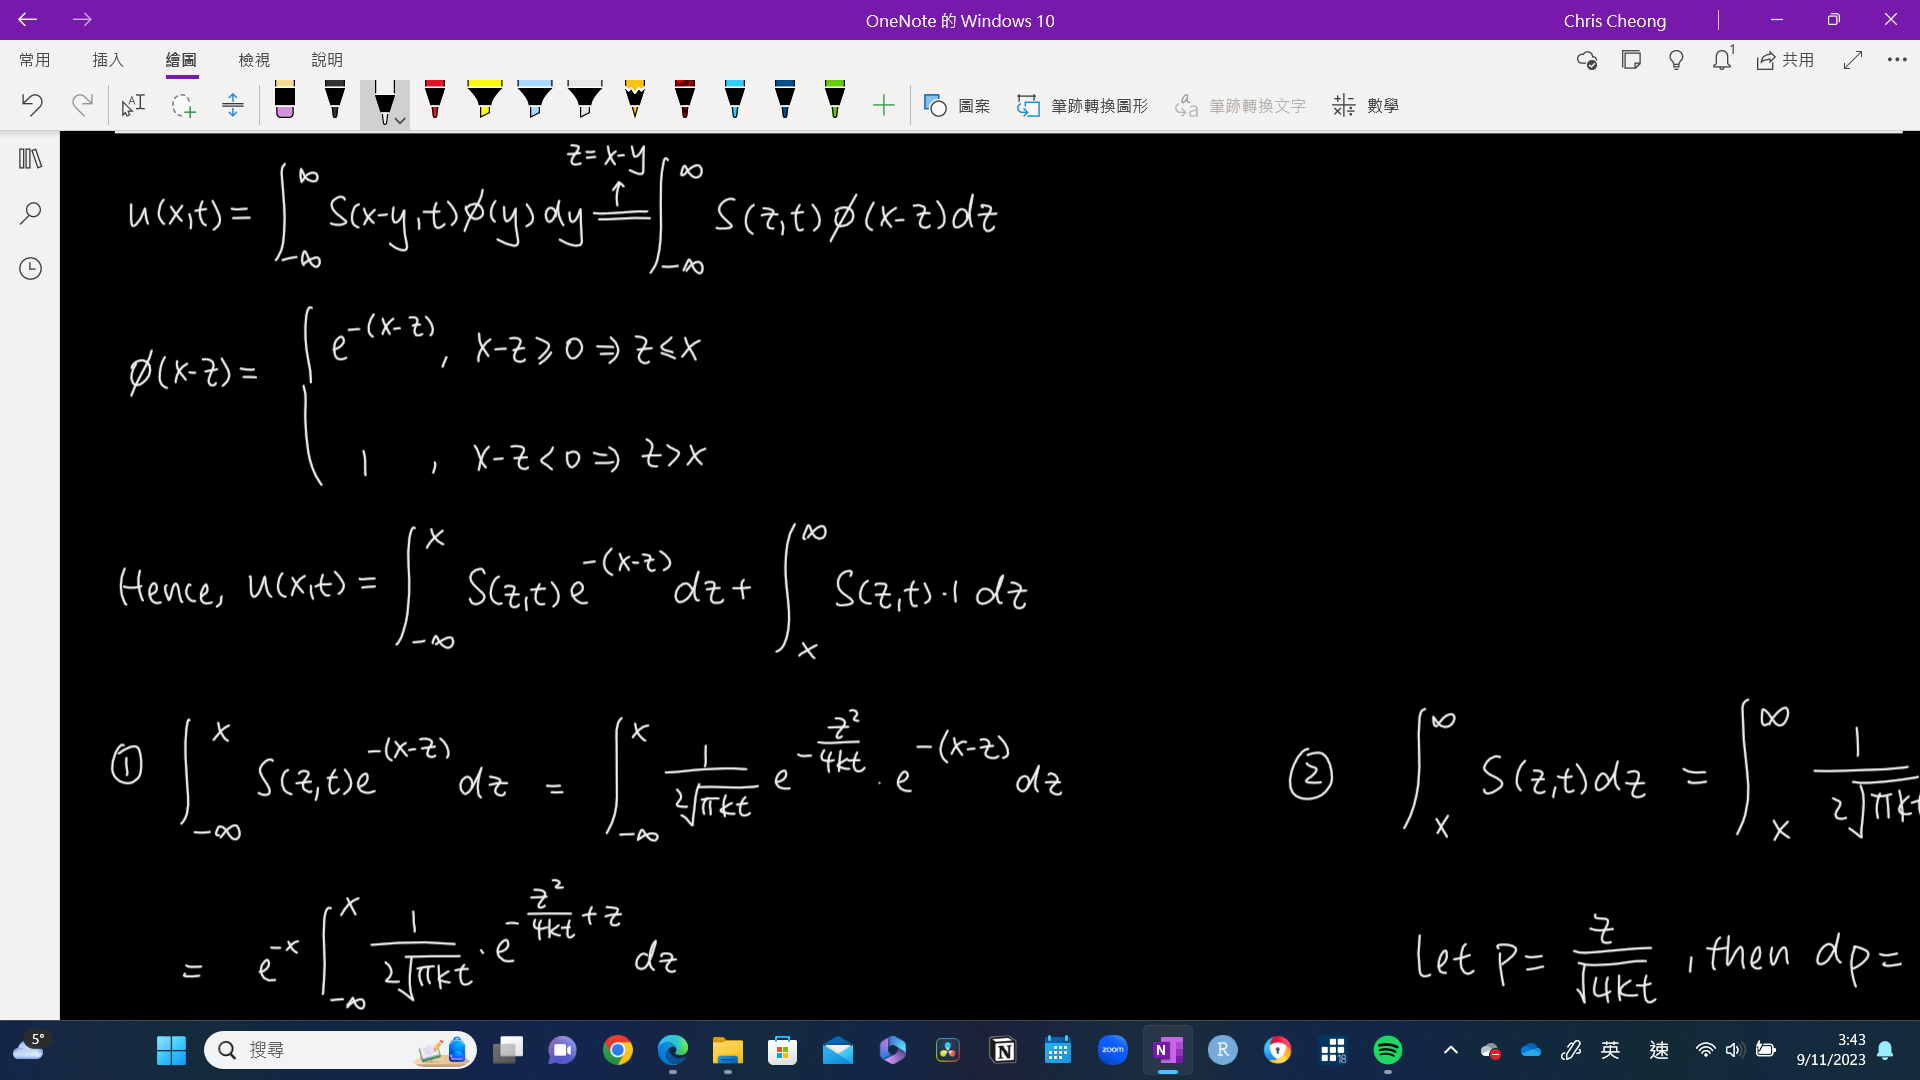 OneNote 的 Windows 10
Chris Cheong
常用 插入 繪圖 檢視 說明
1
共用
圖案 筆跡轉換圖形 筆跡轉換文字 數學
z = x-y
u(x,t) = ∫_{-∞}^{∞} S(x-y,t) ϕ(y) dy = ∫_{-∞}^{∞} S(z,t) ϕ(x-z) dz
ϕ(x-z) = { e^{-(x-z)}, x-z ⩾ 0 ⇒ z ⩽ x
1 , x-z < 0 ⇒ z > x
Hence, u(x,t) = ∫_{-∞}^{x} S(z,t) e^{-(x-z)} dz + ∫_{x}^{∞} S(z,t)·1 dz
① ∫_{-∞}^{x} S(z,t) e^{-(x-z)} dz = ∫_{-∞}^{x} \frac{1}{2√{πkt}} e^{-\frac{z^2}{4kt}} · e^{-(x-z)} dz
② ∫_{x}^{∞} S(z,t) dz = ∫_{x}^{∞} \frac{1}{2√{πkt}}
= e^{-x} ∫_{-∞}^{x} \frac{1}{2√{πkt}} · e^{-\frac{z^2}{4kt}+z} dz
Let p = \frac{z}{√{4kt}}, then dp =
5°
搜尋
zoom
N
R
18
英
速
3:43
9/11/2023